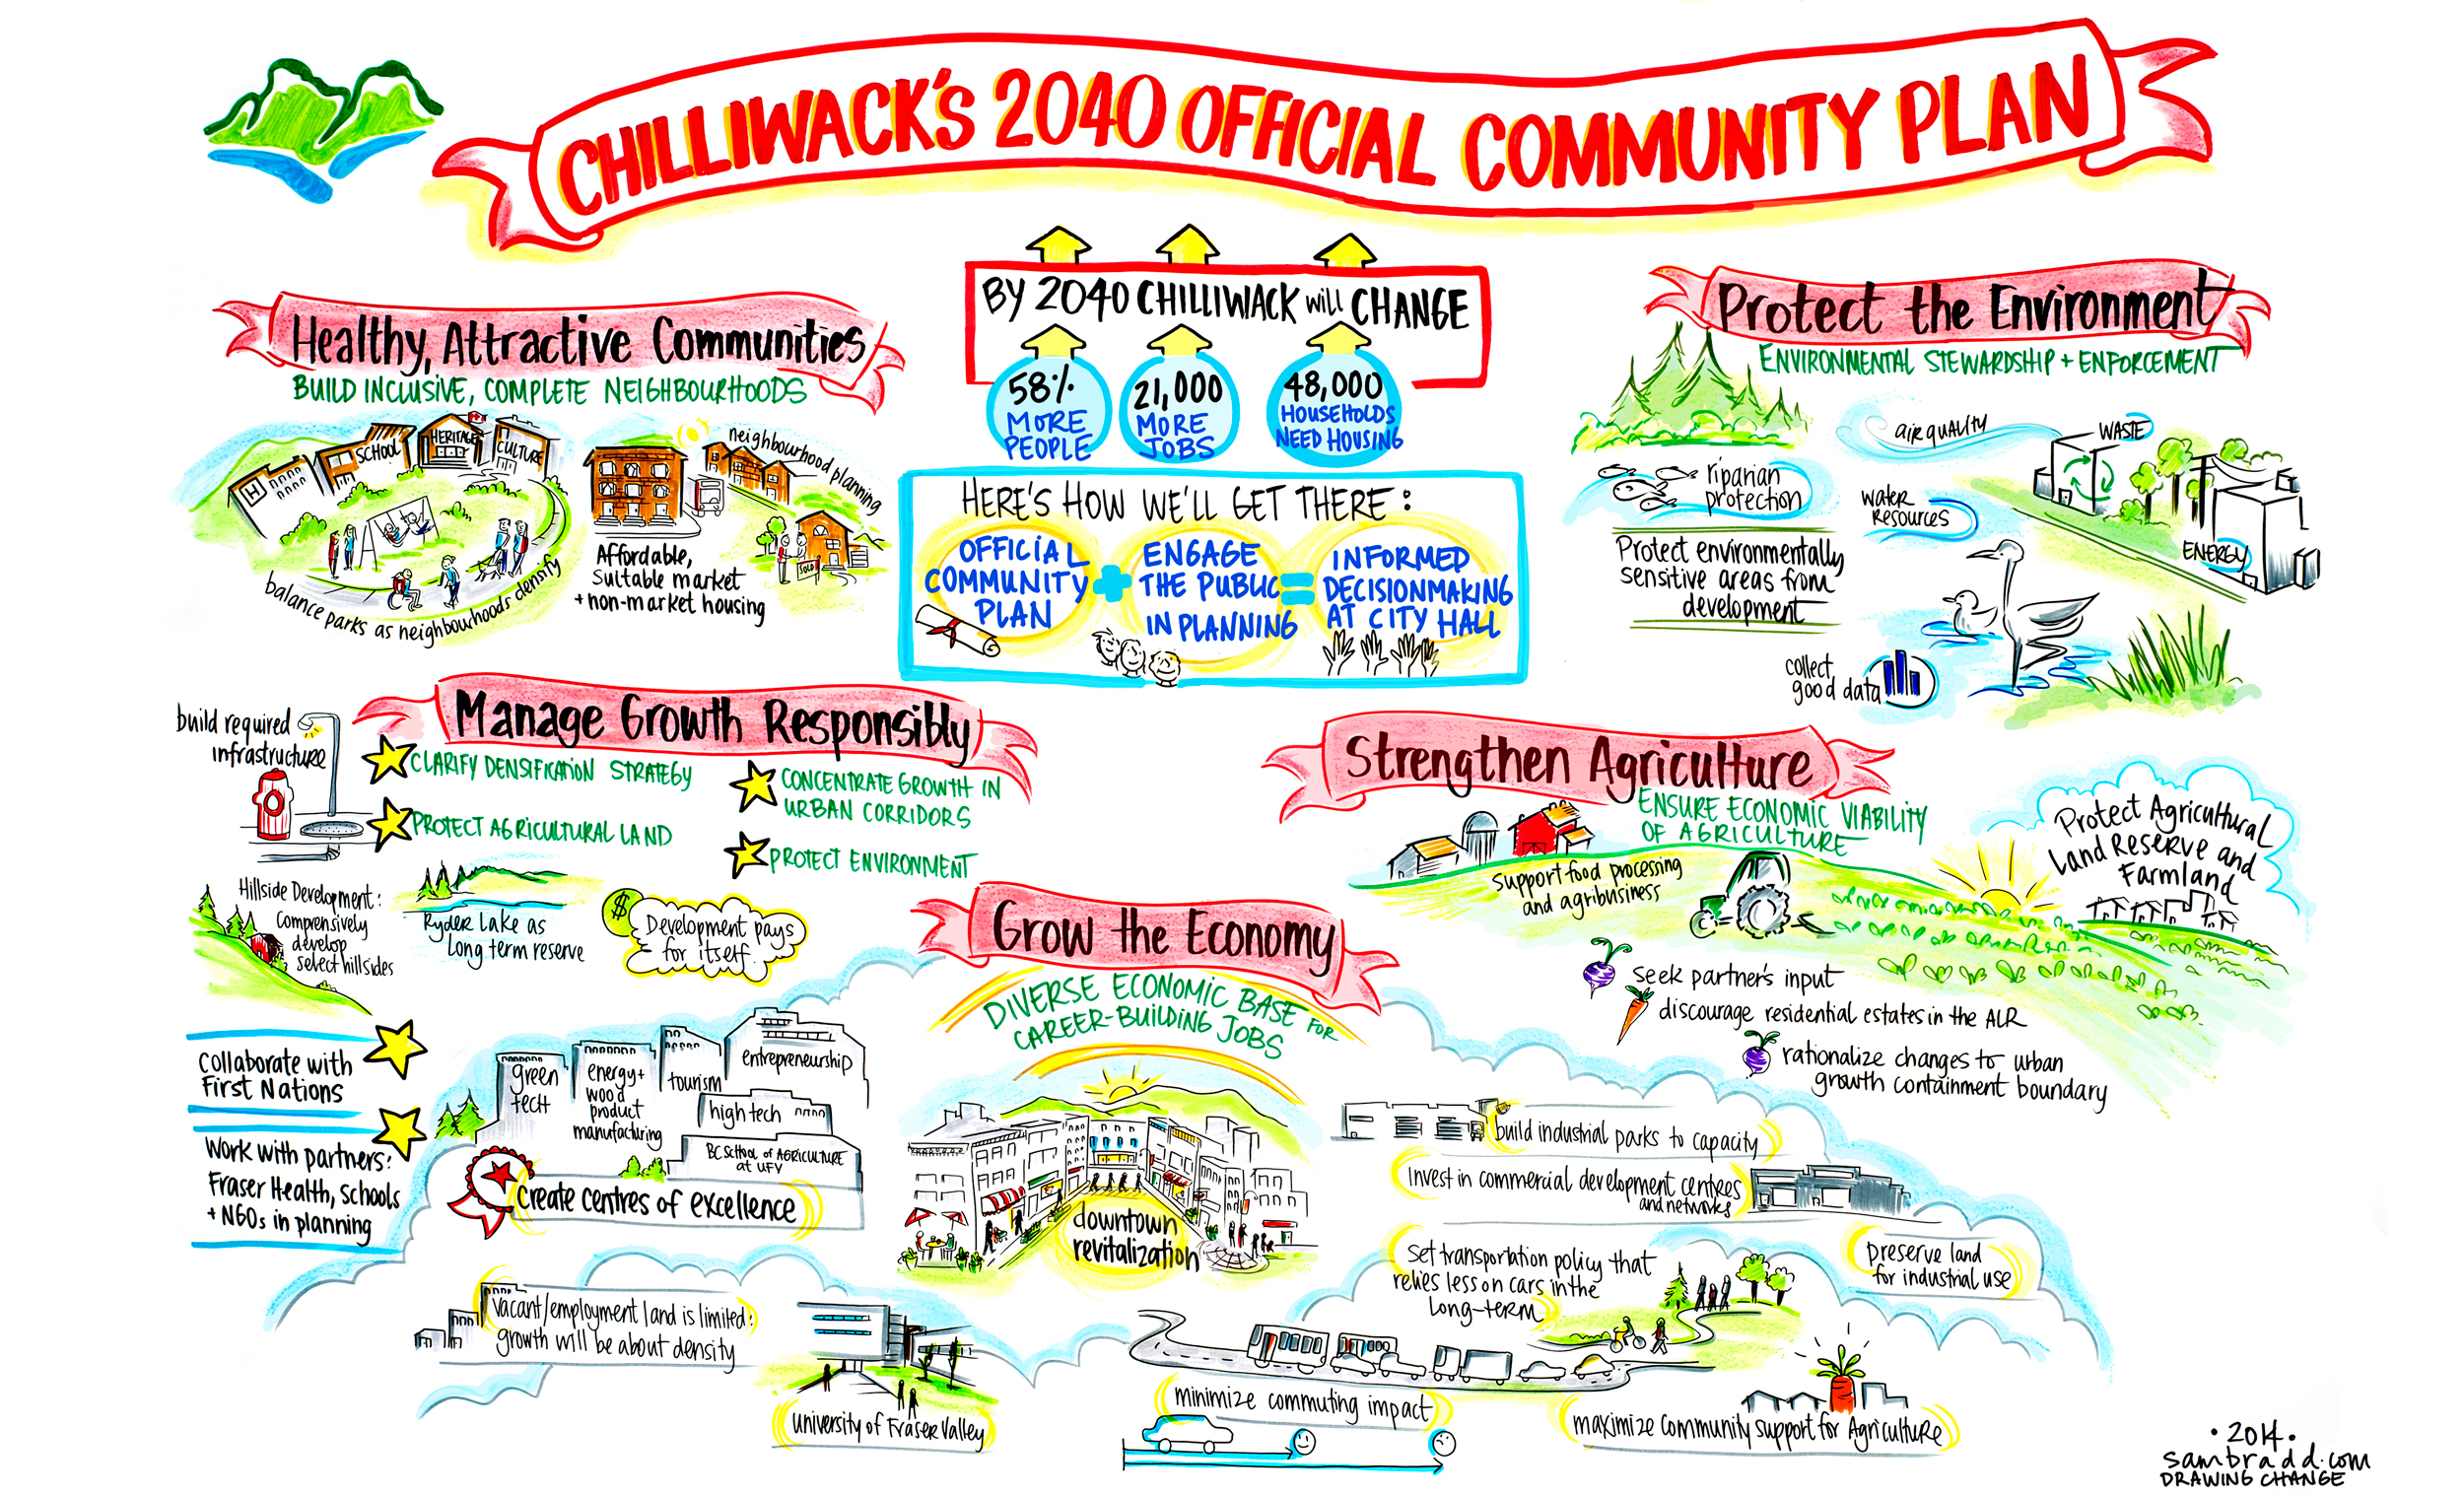 CHILLIWACK'S 2040 OFFICIAL COMMUNITY PLAN
BY 2040 CHILLIWACK will CHANGE
58%
MORE
PEOPLE
21,000
MORE
JOBS
48,000
HOUSEHOLDS
NEED HOUSING
HERE'S HOW WE'LL GET THERE:
OFFICIAL
COMMUNITY
PLAN
+
ENGAGE
THE PUBLIC
IN PLANNING
=
INFORMED
DECISIONMAKING
AT CITY HALL
Healthy, Attractive Communities
BUILD INCLUSIVE, COMPLETE NEIGHBOURHOODS
H
SCHOOL
HERITAGE
CULTURE
balance parks as neighbourhoods densify
neighbourhood planning
SOLD
Affordable,
suitable market
+ non-market housing
Protect the Environment
ENVIRONMENTAL STEWARDSHIP + ENFORCEMENT
air quality
WASTE
riparian
protection
water
RESOURCES
ENERGY
Protect environmentally
sensitive areas from
development
collect
good data
Manage Growth Responsibly
build required
infrastructure
CLARIFY DENSIFICATION STRATEGY
CONCENTRATE GROWTH IN
URBAN CORRIDORS
PROTECT AGRICULTURAL LAND
PROTECT ENVIRONMENT
Hillside Development:
Comprensively
develop
select hillsides
Ryder Lake as
Long term reserve
$
Development pays
for itself.
Collaborate with
First Nations
Work with partners:
Fraser Health, schools
+ NGOs in planning
Strengthen Agriculture
ENSURE ECONOMIC VIABILITY
OF AGRICULTURE
Support food processing
and agribusiness
Protect Agricultural
Land Reserve and
Farmland
seek partner's input
discourage residential estates in the ALR
rationalize changes to urban
growth containment boundary
Grow the Economy
DIVERSE ECONOMIC BASE FOR
CAREER-BUILDING JOBS
green
tech
energy +
wood
product
manufacturing
tourism
entrepreneurship
high tech
BC SCHOOL OF AGRICULTURE
at UFV
Create centres of excellence
downtown
revitalization
build industrial parks to capacity
Invest in commercial development centres
and networks
Set transportation policy that
relies less on cars in the
long-term
preserve land
for industrial use
vacant/employment land is limited:
growth will be about density
university of Fraser Valley
minimize commuting impact
maximize community support for Agriculture
• 2014 •
sambradd.com
DRAWING CHANGE